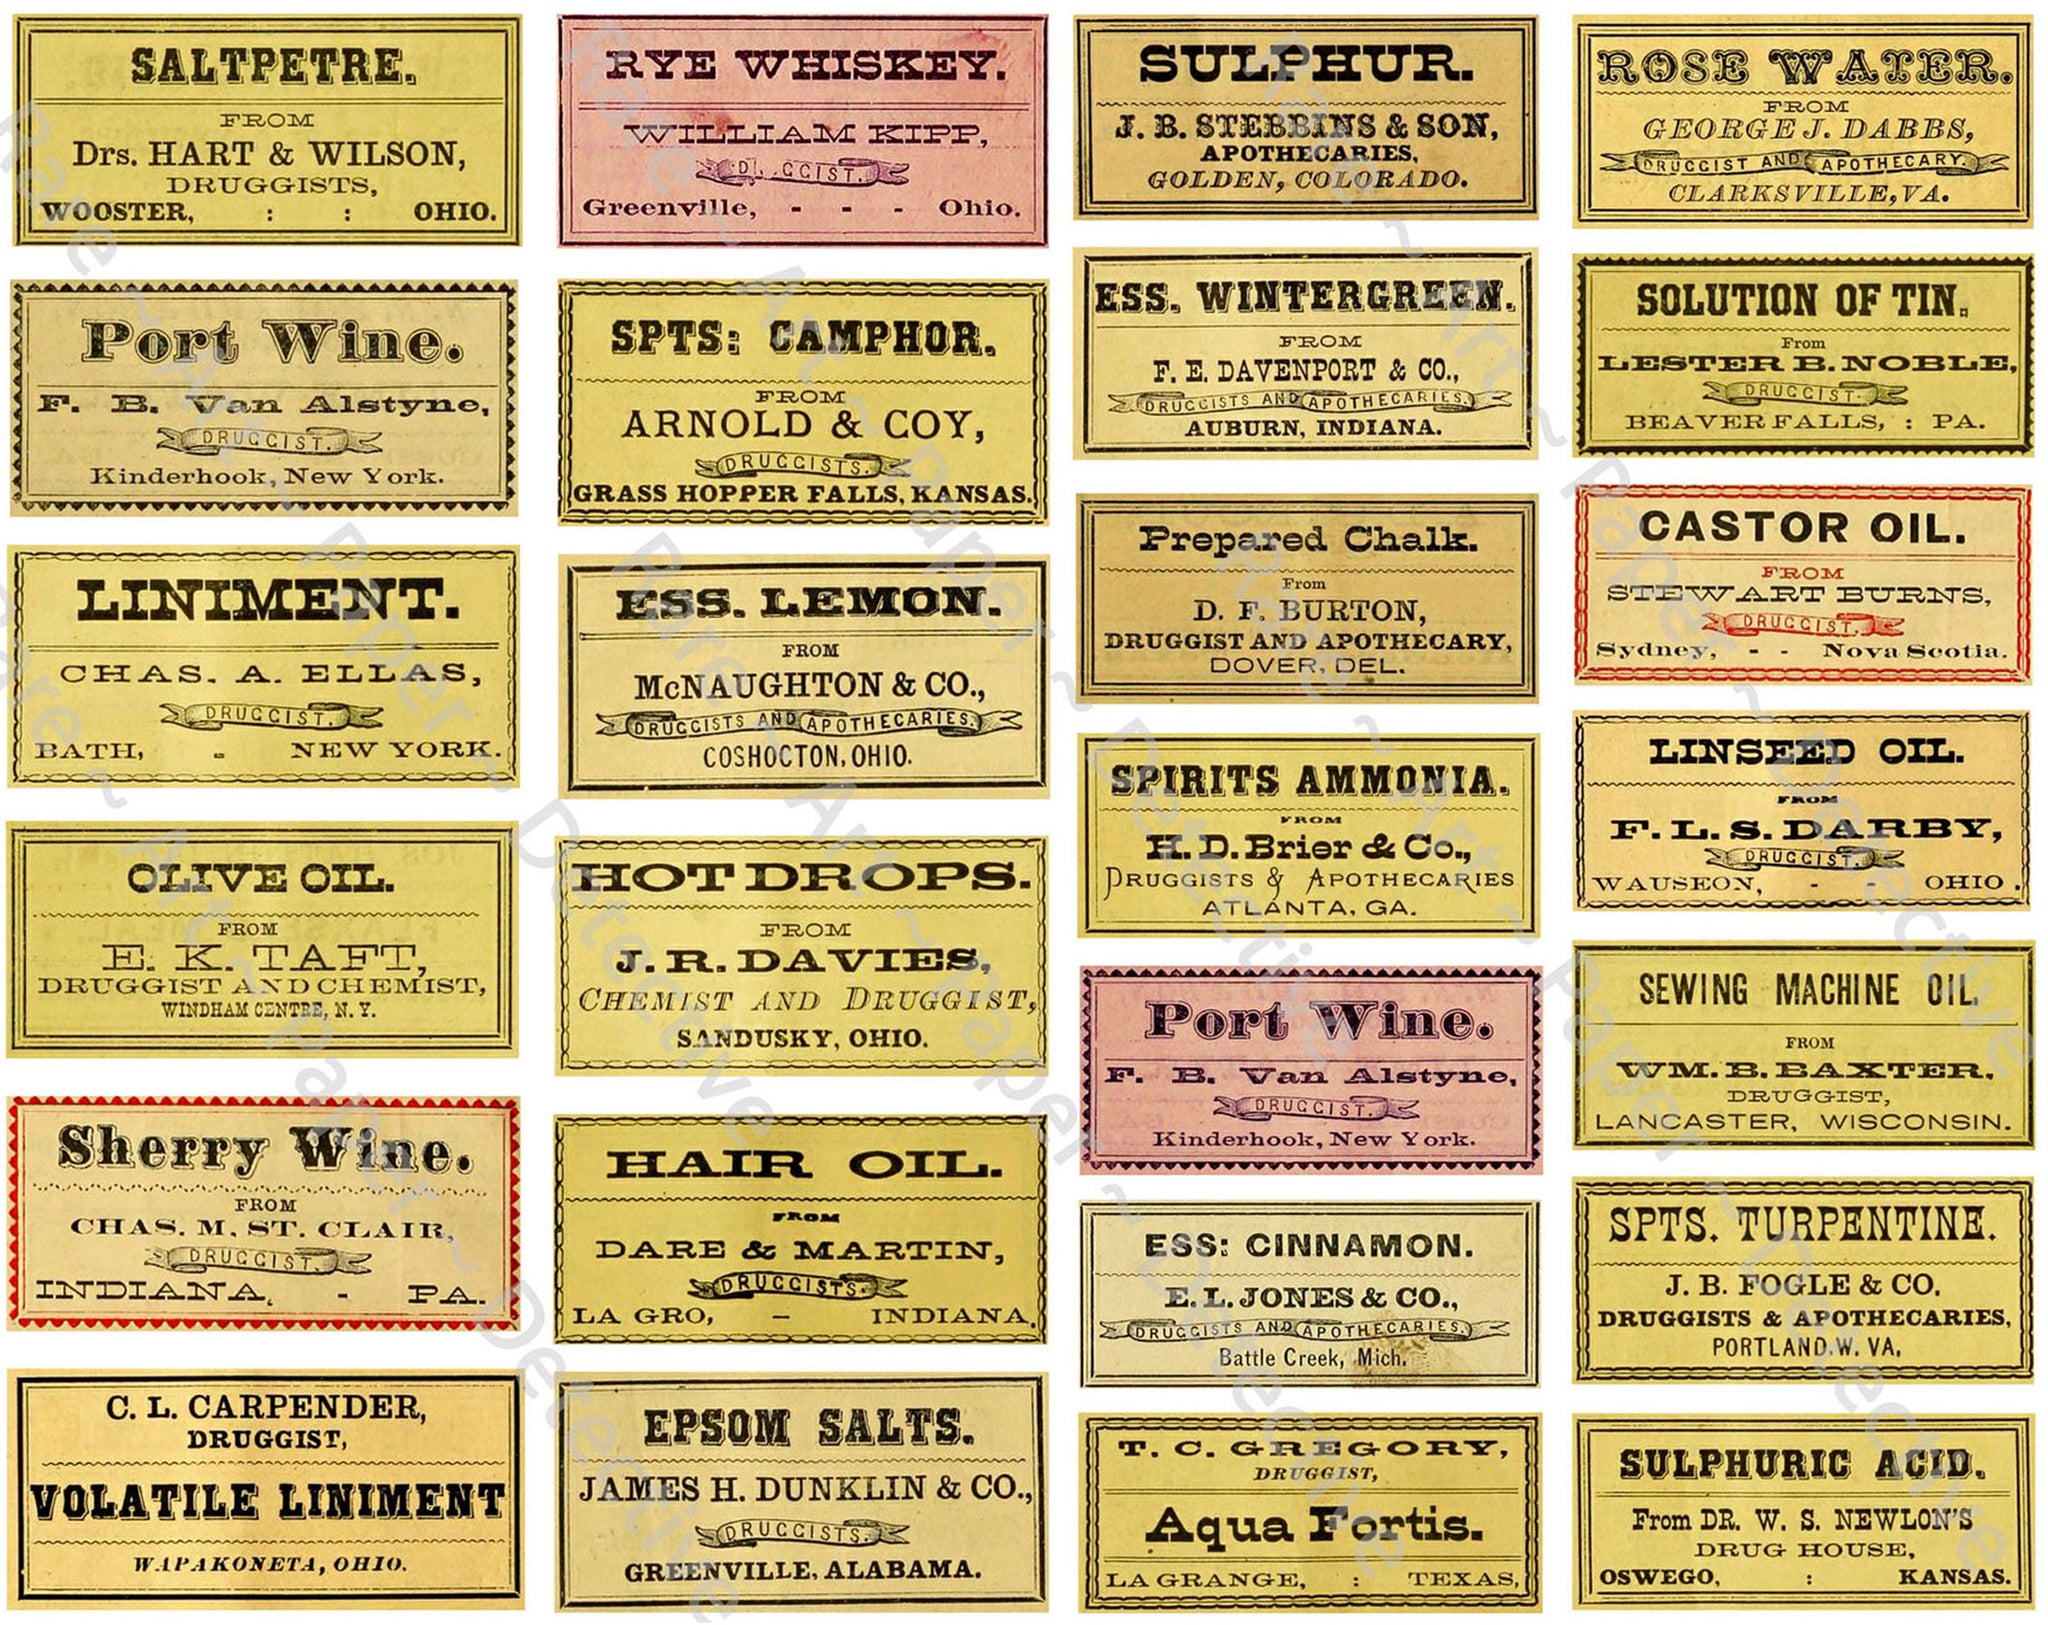 SALTPETRE.
FROM
Drs. HART & WILSON,
DRUGGISTS,
WOOSTER, : : OHIO.
Port Wine.
F. B. Van Alstyne,
DRUGGIST.
Kinderhook, New York.
LINIMENT.
CHAS. A. ELLAS,
DRUGGIST.
BATH, - NEW YORK.
OLIVE OIL.
FROM
E. K. TAFT,
DRUGGIST AND CHEMIST,
WINDHAM CENTRE, N. Y.
Sherry Wine.
FROM
CHAS. M. ST. CLAIR,
DRUGGIST.
INDIANA, - PA.
C. L. CARPENDER,
DRUGGIST,
VOLATILE LINIMENT
WAPAKONETA, OHIO.
RYE WHISKEY.
WILLIAM KIPP,
DRUGGIST.
Greenville, - - - Ohio.
SPTS: CAMPHOR.
FROM
ARNOLD & COY,
DRUGGISTS.
GRASS HOPPER FALLS, KANSAS.
ESS. LEMON.
FROM
McNAUGHTON & CO.,
DRUGGISTS AND APOTHECARIES.
COSHOCTON, OHIO.
HOT DROPS.
FROM
J. R. DAVIES,
CHEMIST AND DRUGGIST,
SANDUSKY, OHIO.
HAIR OIL.
FROM
DARE & MARTIN,
DRUGGISTS.
LA GRO, - INDIANA.
EPSOM SALTS.
JAMES H. DUNKLIN & CO.,
DRUGGISTS.
GREENVILLE, ALABAMA.
SULPHUR.
J. B. STEBBINS & SON,
APOTHECARIES,
GOLDEN, COLORADO.
ESS. WINTERGREEN.
FROM
F. E. DAVENPORT & CO.,
DRUGGISTS AND APOTHECARIES.
AUBURN, INDIANA.
Prepared Chalk.
From
D. F. BURTON,
DRUGGIST AND APOTHECARY,
DOVER, DEL.
SPIRITS AMMONIA.
FROM
H. D. Brier & Co.,
DRUGGISTS & APOTHECARIES
ATLANTA, GA.
Port Wine.
F. B. Van Alstyne,
DRUGGIST.
Kinderhook, New York.
ESS: CINNAMON.
E. L. JONES & CO.,
DRUGGISTS AND APOTHECARIES.
Battle Creek, Mich.
T. C. GREGORY,
DRUGGIST,
Aqua Fortis.
LA GRANGE, : TEXAS,
ROSE WATER.
FROM
GEORGE J. DABBS,
DRUGGIST AND APOTHECARY.
CLARKSVILLE, VA.
SOLUTION OF TIN.
From
LESTER B. NOBLE,
DRUGGIST.
BEAVER FALLS, : PA.
CASTOR OIL.
FROM
STEWART BURNS,
DRUGGIST.
Sydney, - - Nova Scotia.
LINSEED OIL.
FROM
F. L. S. DARBY,
DRUGGIST.
WAUSEON, - - OHIO.
SEWING MACHINE OIL.
FROM
WM. B. BAXTER,
DRUGGIST,
LANCASTER, WISCONSIN.
SPTS. TURPENTINE.
J. B. FOGLE & CO.
DRUGGISTS & APOTHECARIES,
PORTLAND, W. VA.
SULPHURIC ACID.
From DR. W. S. NEWLON'S
DRUG HOUSE,
OSWEGO, : KANSAS.
Rare ~ Art ~ Paper ~ Detective